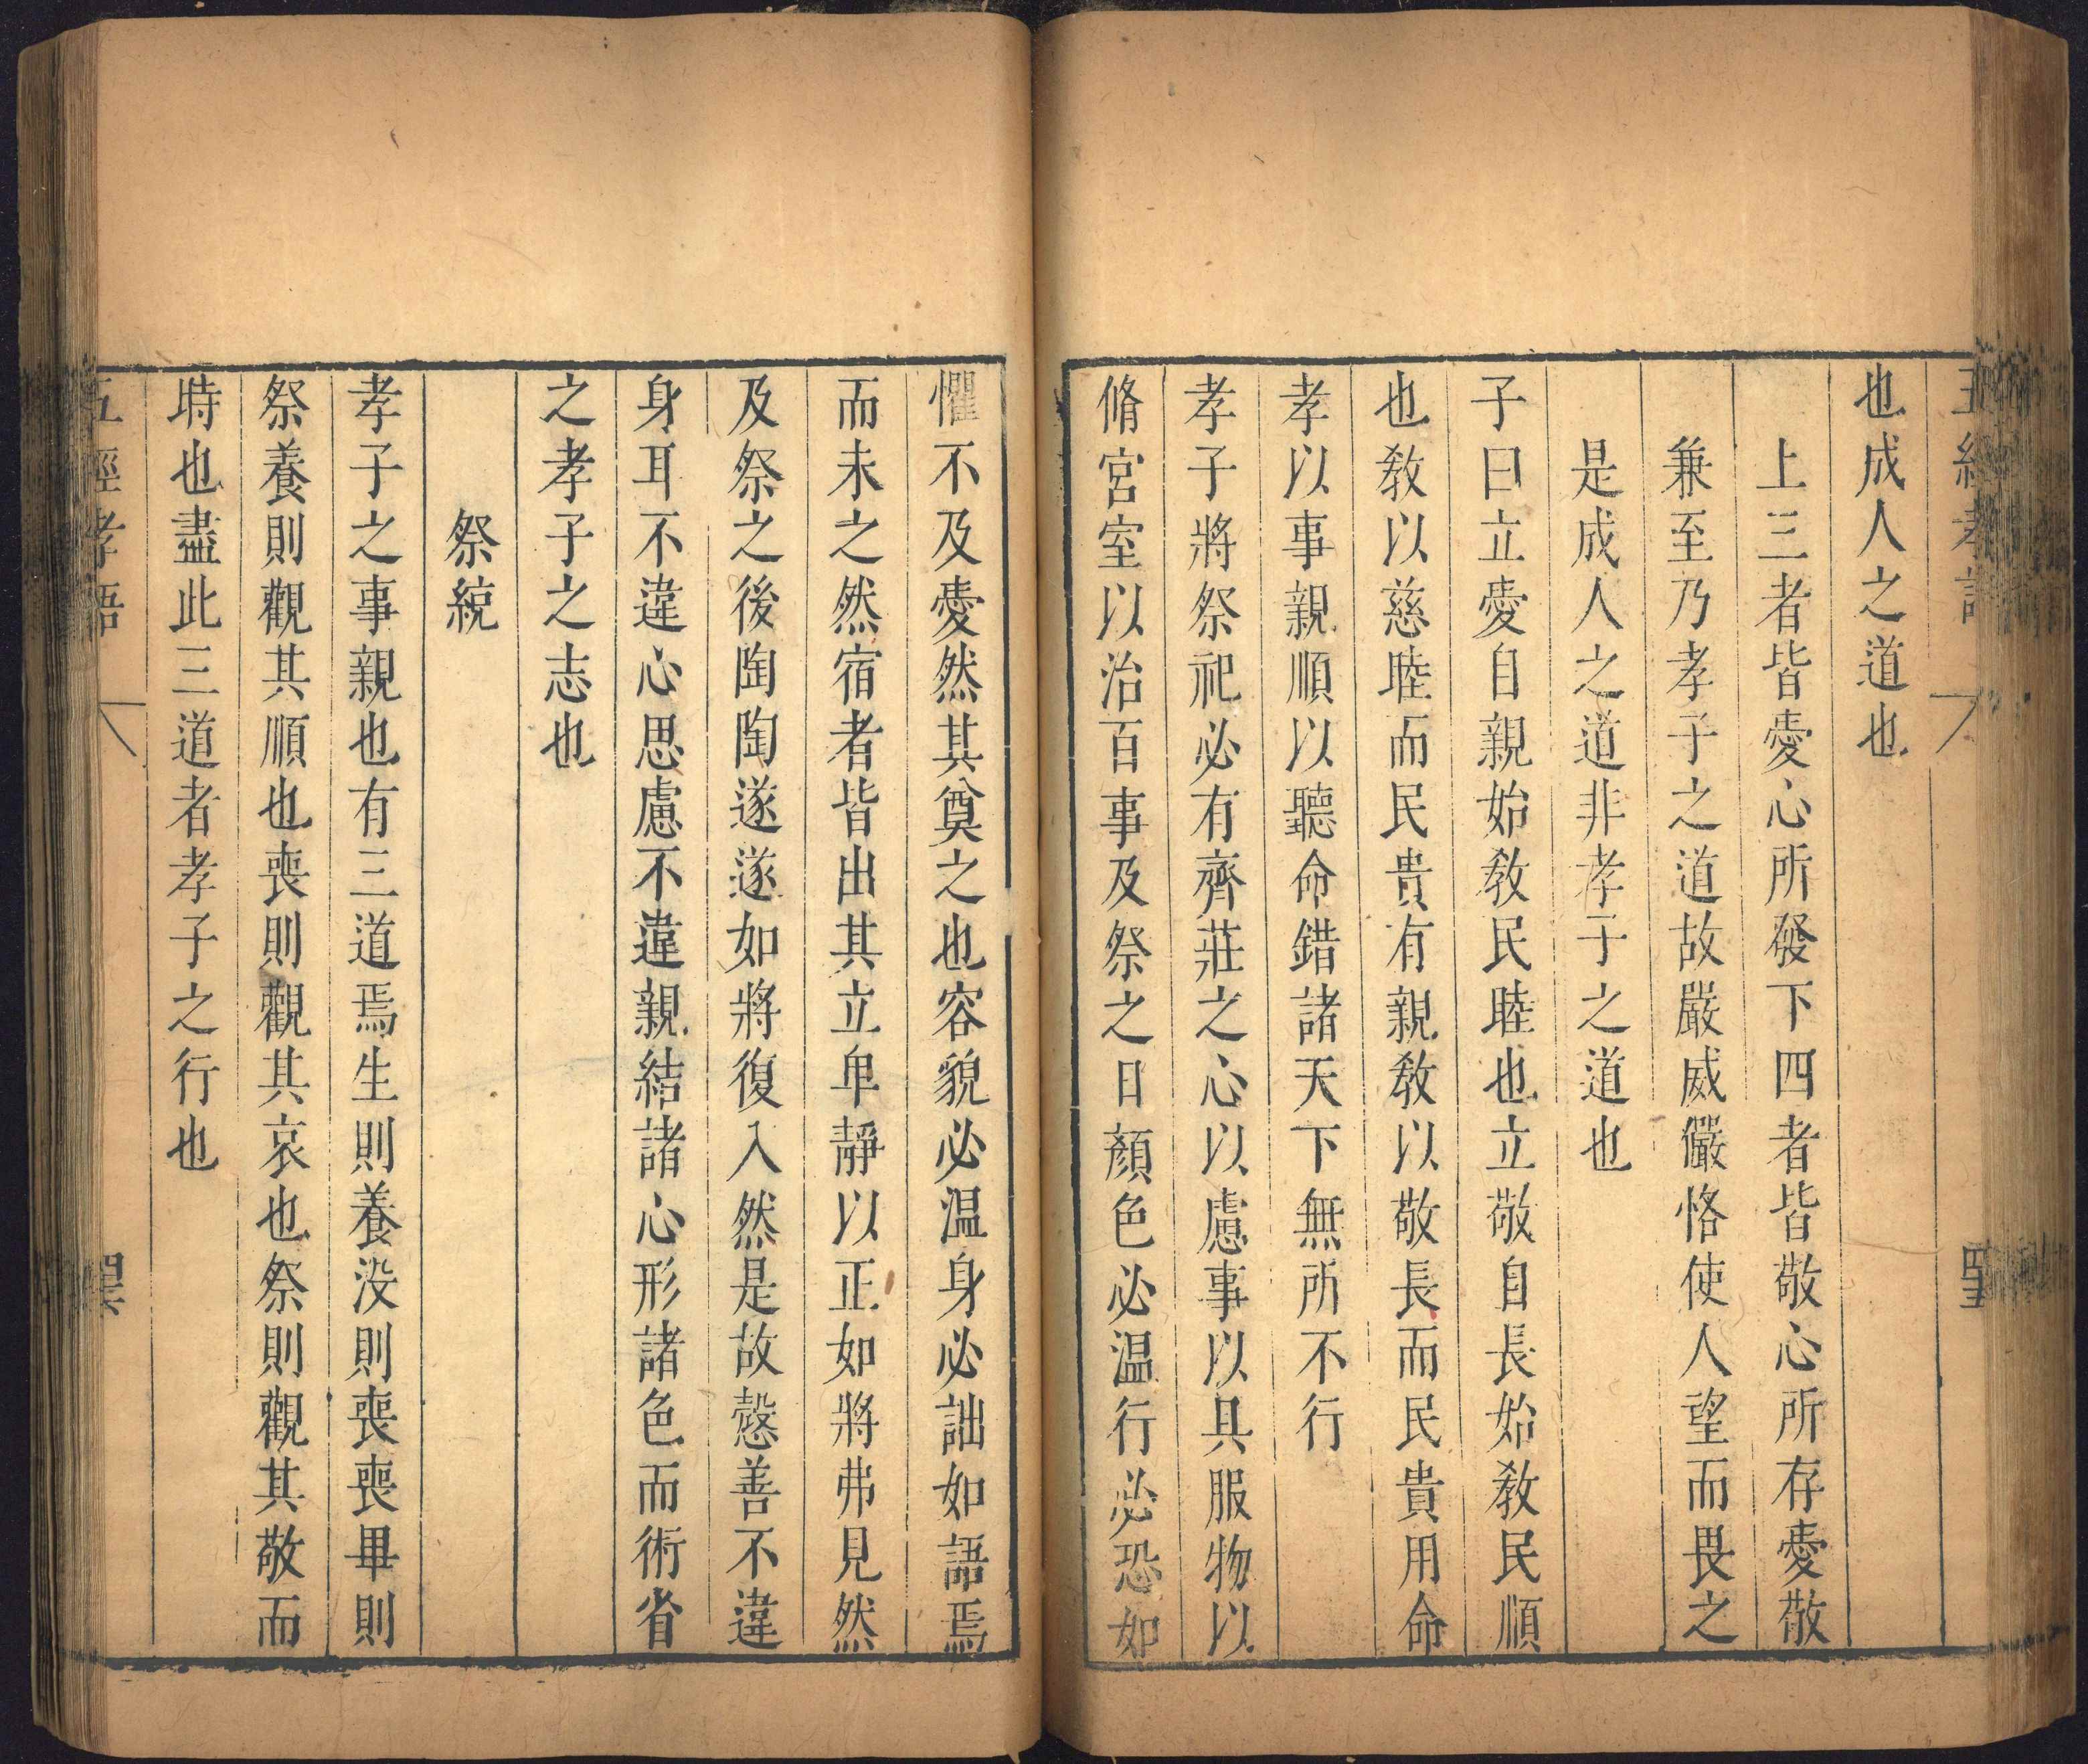 也成人之道也
上三者皆愛心所發下四者皆敬心所存愛敬
兼至乃孝子之道故嚴威儼恪使人望而畏之
是成人之道非孝子之道也
子曰立愛自親始敎民睦也立敬自長始敎民順
也敎以慈睦而民貴有親敎以敬長而民貴用命
孝以事親順以聽命錯諸天下無所不行
孝子將祭祀必有齊莊之心以慮事以具服物以
脩宮室以治百事及祭之日顏色必温行必恐如
懼不及愛然其奠之也容貌必温身必詘如語焉
而未之然宿者皆出其立卑靜以正如將弗見然
及祭之後陶陶遂遂如將復入然是故慤善不違
身耳不違心思慮不違親結諸心形諸色而術省
之孝子之志也
祭統
孝子之事親也有三道焉生則養没則喪喪畢則
祭養則觀其順也喪則觀其哀也祭則觀其敬而
時也盡此三道者孝子之行也
五經孝語